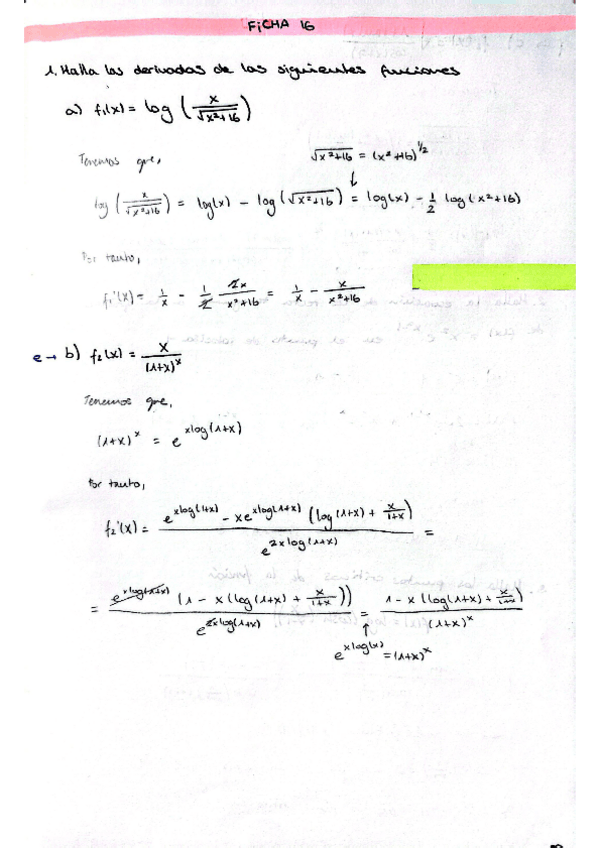 FICHA 16
1. Halla las derivadas de las siguientes funciones
a) f₁(x) = log (x/√(x²+16))
Tenemos que, √(x²+16) = (x²+16)^1/2
↓
log (x/√(x²+16)) = log(x) - log(√(x²+16)) = log(x) - 1/2 log(x²+16)
Por tanto,
f₁'(x) = 1/x - 1/2 2x/(x²+16) = 1/x - x/(x²+16)
e → b) f₂(x) = x/(1+x)^x
Tenemos que,
(1+x)^x = e^(xlog(1+x))
Por tanto,
f₂'(x) = (e^(xlog(1+x)) - xe^(xlog(1+x)) (log(1+x) + x/(1+x)))/e^(2xlog(1+x)) =
= e^(xlog(1+x)) (1 - x(log(1+x) + x/(1+x)))/e^(2xlog(1+x)) = (1 - x(log(1+x) + x/(1+x)))/(1+x)^x.
↑
e^(xlog(x)) = (1+x)^x